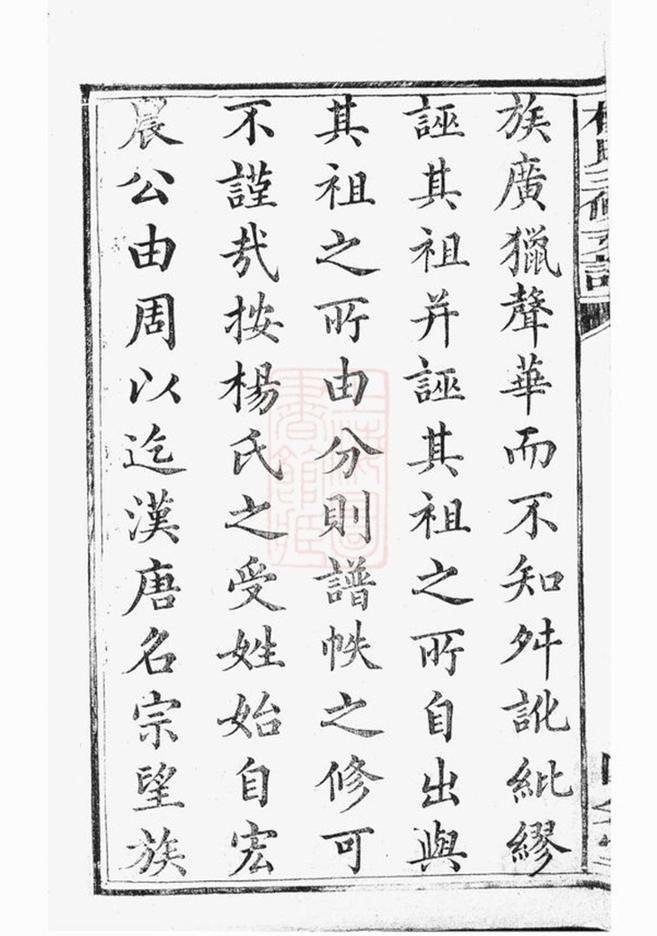 族廣獵聲華而不知舛訛紕繆
誣其祖并誣其祖之所自出與
其祖之所由分則譜帙之修可
不謹哉按楊氏之受姓始自宏
晨公由周以迄漢唐名宗望族